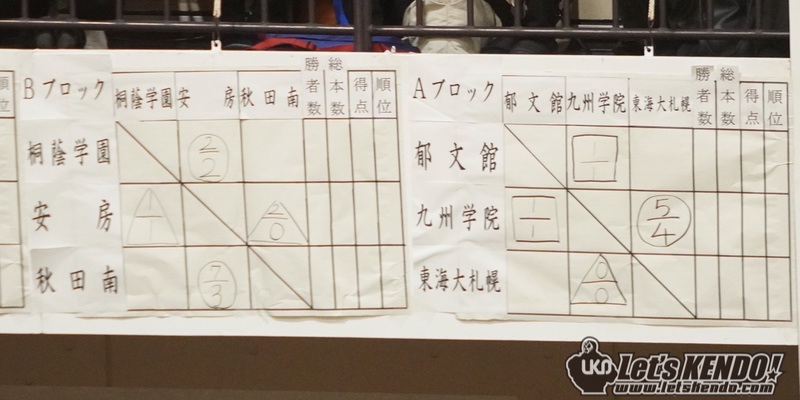 順位
Bブロック 桐蔭学園 安房 秋田南 勝者数 総本数 得点 順位
桐蔭学園 2/2
安房 1/1 2/0
秋田南 7/3
Aブロック 郁文館 九州学院 東海大札幌 勝者数 総本数 得点 順位
郁文館 1/1
九州学院 1/1 5/4
東海大札幌 0/0
UKN Let's KENDO!
www.letskendo.com